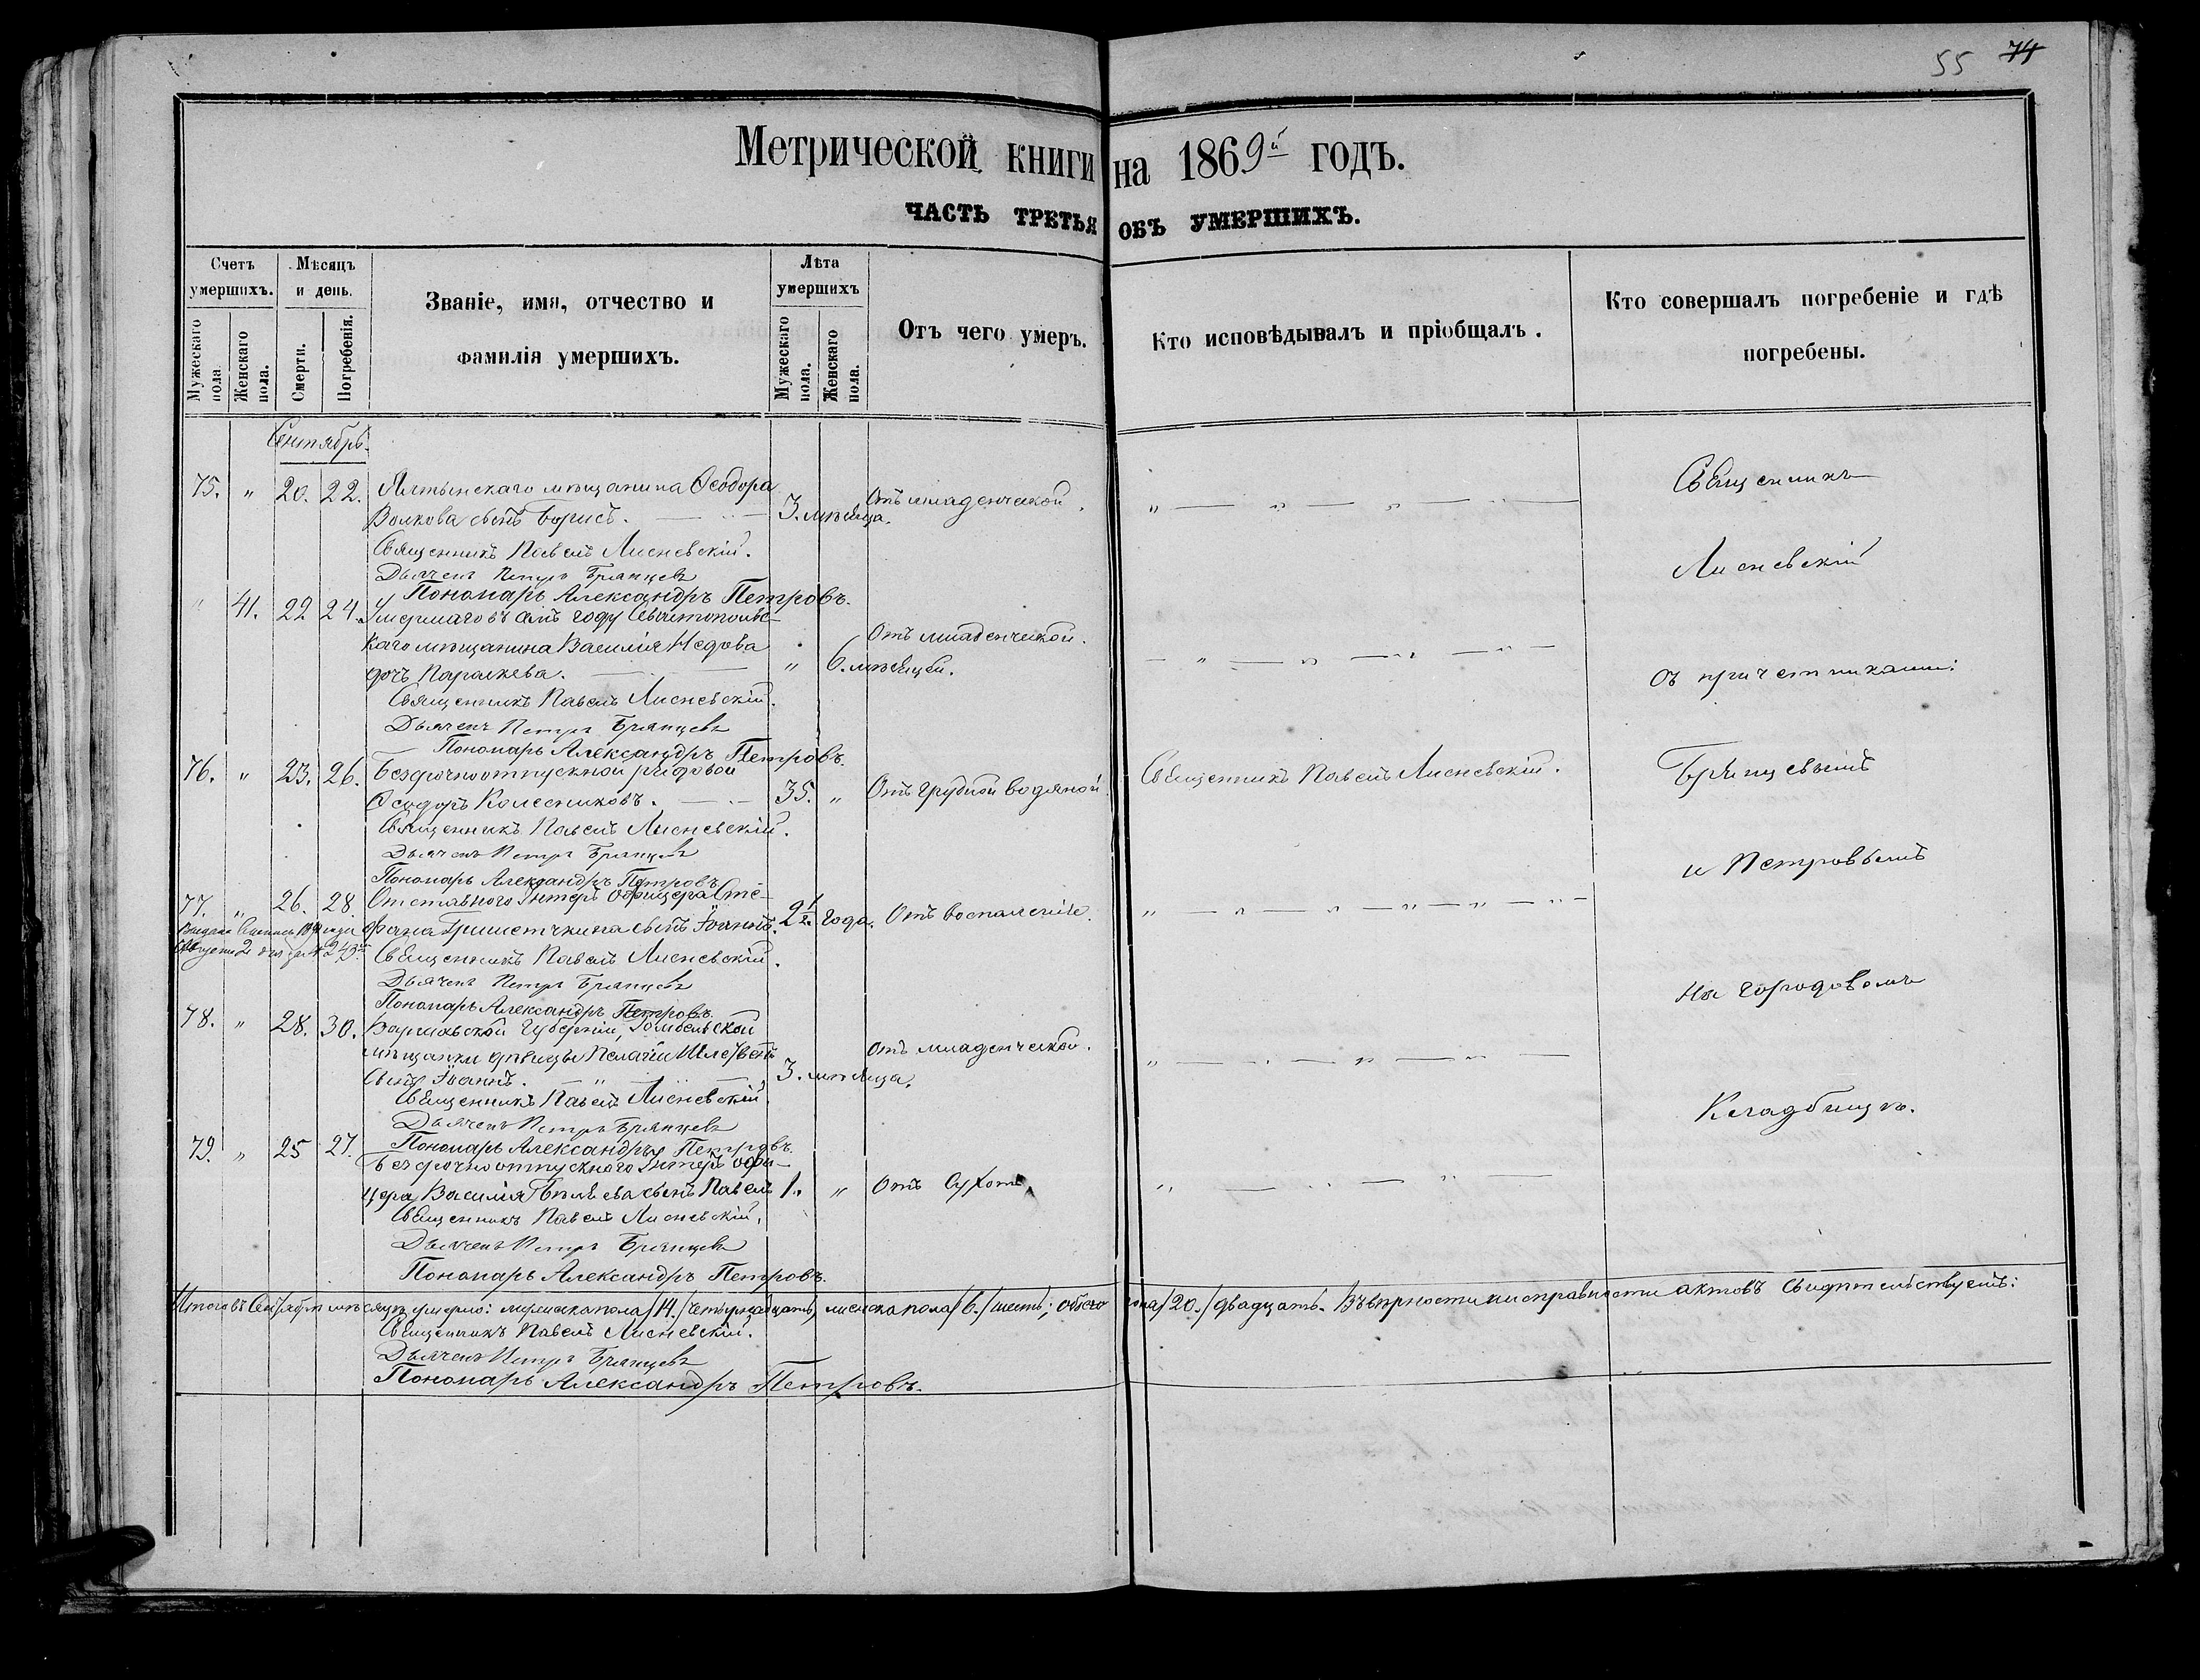 55 74
Метрической книги на 1869й годъ.
ЧАСТЬ ТРЕТЬЯ ОБЪ УМЕРШИХЪ.
Счетъ умершихъ.
Мужескаго пола.
Женскаго пола.
Мѣсяцъ и день.
Смерти.
Погребенія.
Званіе, имя, отчество и
фамилія умершихъ.
Лѣта умершихъ
Мужескаго пола.
Женскаго пола.
Отъ чего умеръ.
Кто исповѣдывалъ и пріобщалъ.
Кто совершалъ погребеніе и гдѣ
погребены.
Сентябрь.
75. " 20. 22. Ялтынскаго мѣщанина Ѳеодора
Волкова сынъ Борисъ. 3. мѣсяца. Отъ младенческой.
Священникъ Павелъ Лисневскій.
Дьячекъ Петръ Брянцевъ
Пономарь Александръ Петровъ.
" 41. 22 24. Умершаго въ семъ году Севастопольс-
каго мѣщанина Василія
дочь Параскева. " 6. мѣсяцей. Отъ младенческой.
Священникъ Павелъ Лисневскій.
Дьячекъ Петръ Брянцевъ
Пономарь Александръ Петровъ.
76. " 23. 26. Безсрочноотпускной рядовой
Ѳеодоръ Колесниковъ. 35. " Отъ грудной водяной. Священникъ Павелъ Лисневскій.
Священникъ Павелъ Лисневскій.
Дьячекъ Петръ Брянцевъ
Пономарь Александръ Петровъ
77. " 26. 28. Отставного Унтеръ офицера Сте-
фана Гришечкина сынъ Іоаннъ. 2½ года. Отъ воспаленія.
Священникъ Павелъ Лисневскій.
Дьячекъ Петръ Брянцевъ
Пономарь Александръ Петровъ.
78. " 28. 30. Варшавской Губерніи,
мѣщанки дѣвицы Пелагіи
сынъ Іоаннъ. 3. мѣсяца. Отъ младенческой.
Священникъ Павелъ Лисневскій.
Дьячекъ Петръ Брянцевъ
Пономарь Александръ Петровъ.
79. " 25 27. Безсрочноотпускного Унтеръ офи-
цера Василія сынъ Павелъ 1. " Отъ Сухотъ
Священникъ Павелъ Лисневскій.
Дьячекъ Петръ Брянцевъ
Пономарь Александръ Петровъ.
Священникъ
Лисневскій
съ причетниками:
Брянцевымъ
и Петровымъ
на городовомъ
Кладбищѣ.
Итого въ Сентябрѣ мѣсяцѣ умерло: мужеска пола /14./ четырнадцать, женска пола /6./ шесть; обоего пола /20./ двадцать. Въ вѣрности и исправности актовъ свидѣтельствуемъ:
Священникъ Павелъ Лисневскій.
Дьячекъ Петръ Брянцевъ
Пономарь Александръ Петровъ.